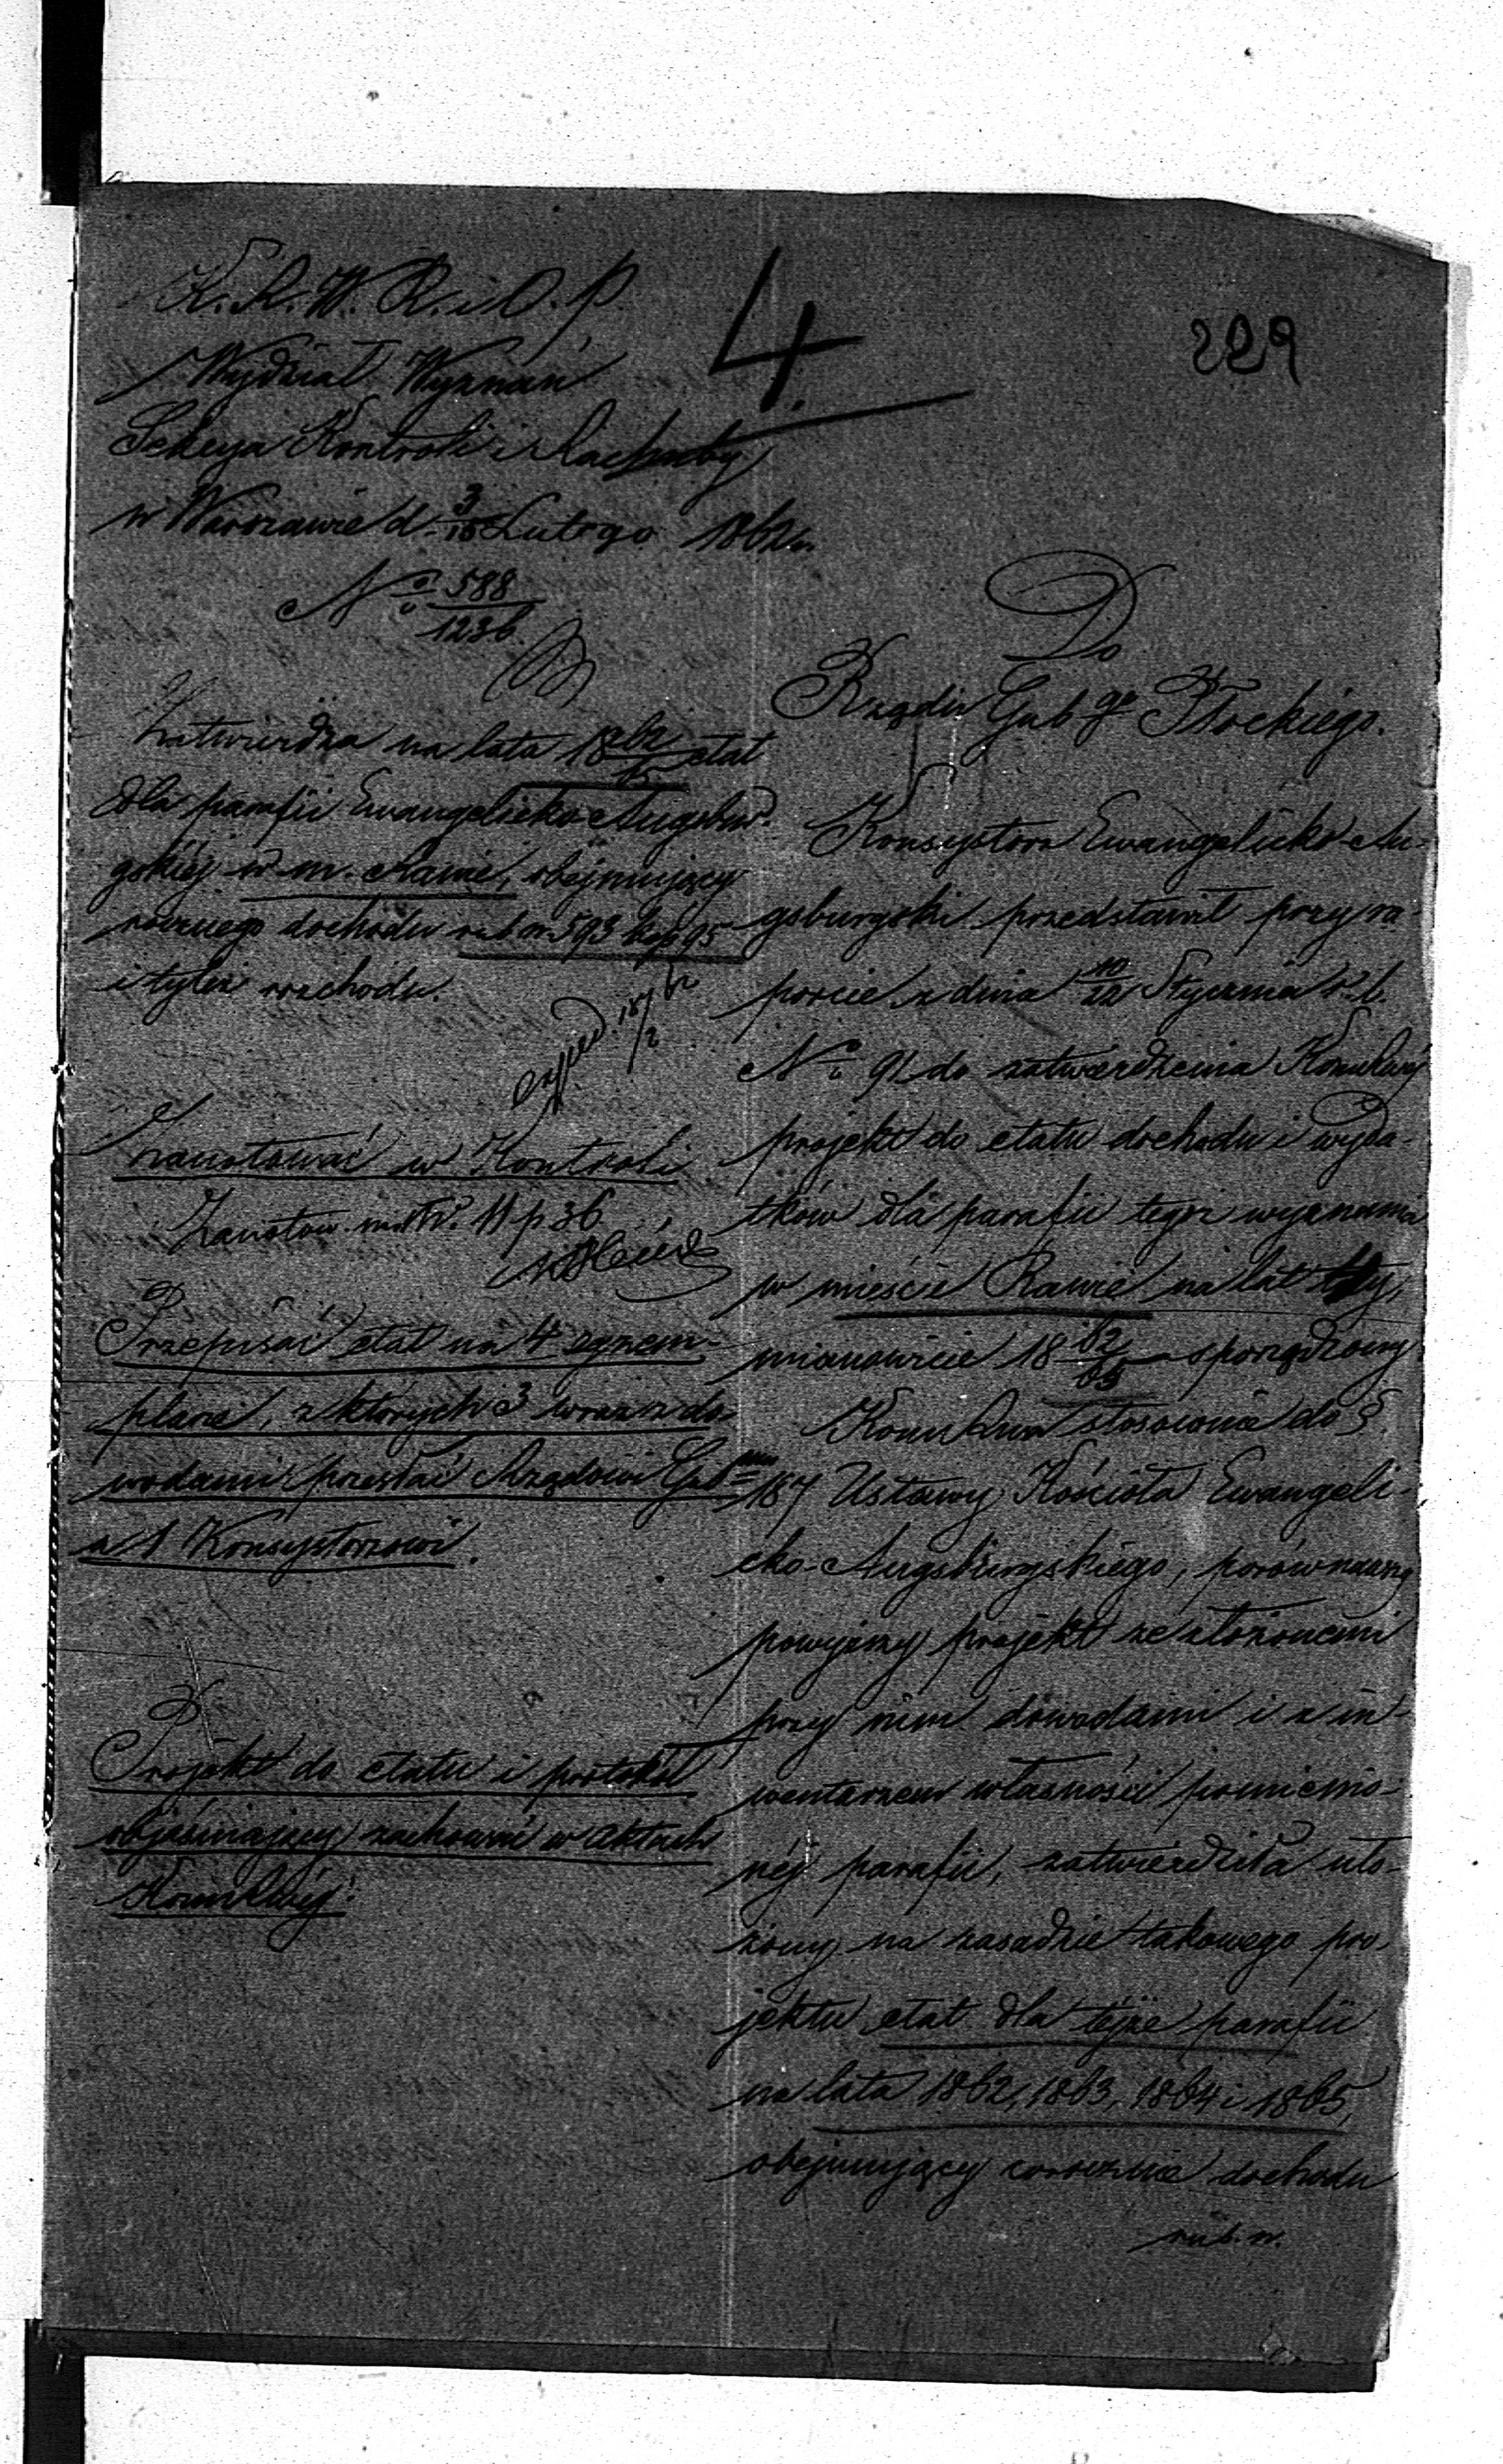 K. R. W. R. i O. P.
4.
229
Wydział Wyznań
Sekcya Kontroli i Rachuby
w Warszawie d. 3/15 Lutego 1862 r.
No 588/1236
Zatwierdza na lata 1862/65 etat
dla parafii Ewangelicko-Augsbur-
gskiéj w m. Rawie, obejmujący
rocznego dochodu rub. sr. 593 kop. 95
i tyleż rozchodu.
exped. 18/2 62
Zanotować w Kontroli
Zanotow. 11 p 36
Przepisać etat na 4 egzem-
plarze, z których 3 wraz z do-
wodami przesłać Rządowi Gub.
a 1 Konsystorzowi.
Projekt do etatu i protokół
objaśniający zachować w aktach
Kom. Rząd.
Do
Rządu Gub go Płockiego.
Konsystorz Ewangelicko-Au-
gsburgski przedstawił przy ra-
porcie z dnia 10/22 Stycznia r. b.
No 91 do zatwierdzenia Kom Rząd
projekt do etatu dochodu i wyda-
tków dla parafii tegoż wyznania
w mieście Rawie na lat
mianowicie 1862/65 sporządzony
Kom Rząd stosownie do §.
187 Ustawy Kościoła Ewangeli-
cko-Augsburgskiego, porównawszy
powyższy projekt ze złożonemi
przy nim dowodami i z in-
wentarzem własności pomienio-
néj parafii, zatwierdziła uło-
żony na zasadzie takowego pro-
jektu etat dla tejże parafii
na lata 1862, 1863, 1864 i 1865,
obejmujący corocznie dochodu
rub. sr.